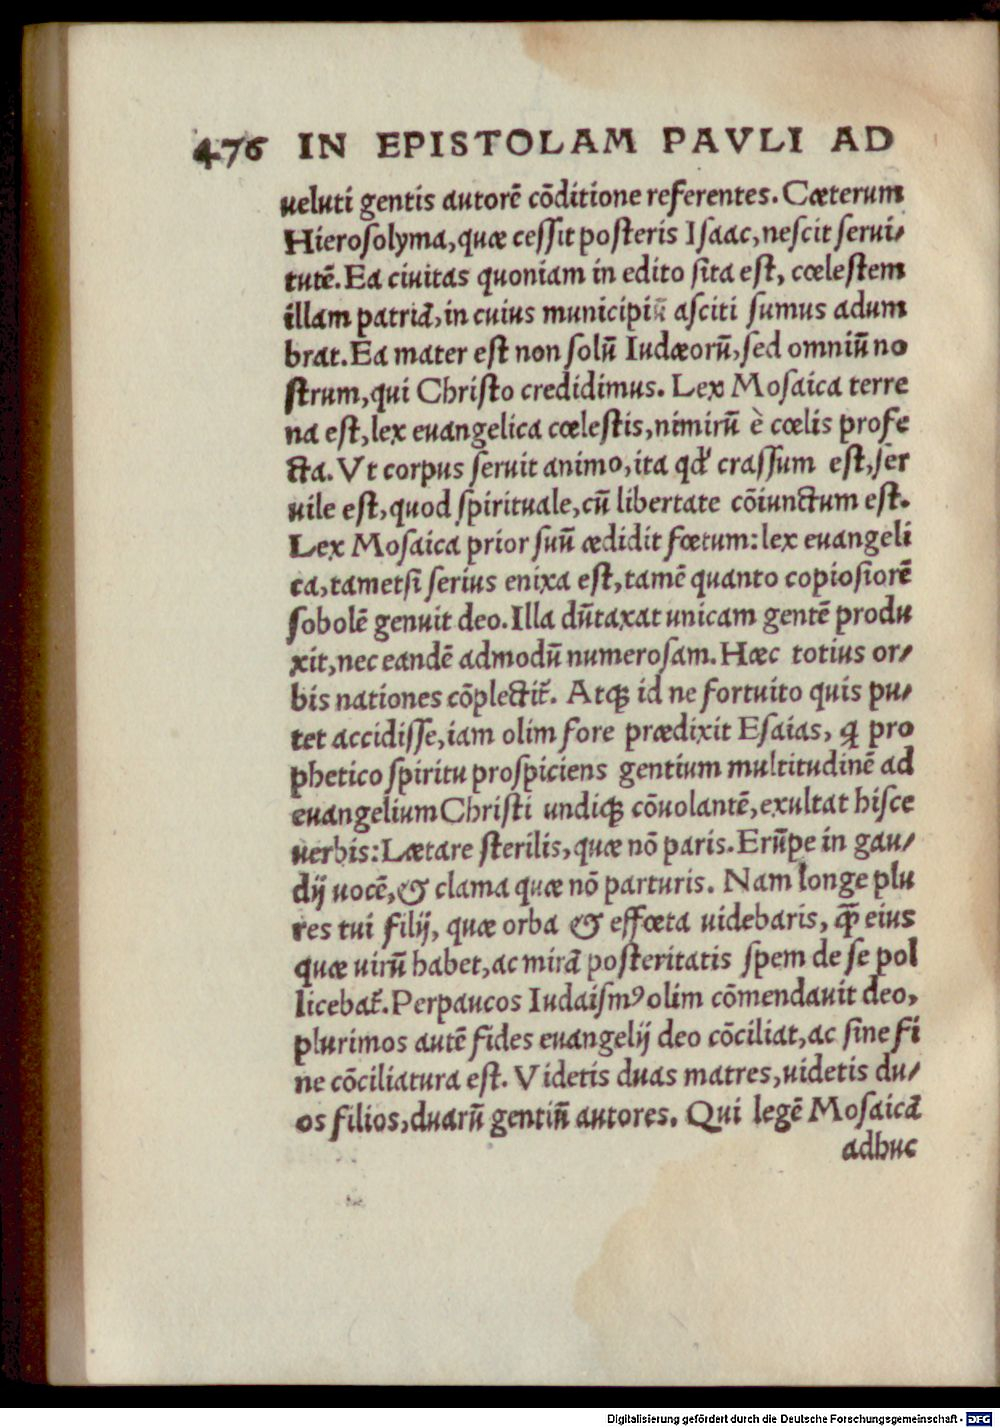 476 IN EPISTOLAM PAVLI AD
ueluti gentis autorē cōditione referentes. Cæterum
Hierosolyma, quæ cessit posteris Isaac, nescit serui/
tutē. Ea ciuitas quoniam in edito sita est, cœlestem
illam patriā, in cuius municipiū asciti sumus adum
brat. Ea mater est non solū Iudæorū, sed omniū no
strum, qui Christo credidimus. Lex Mosaica terre
na est, lex euangelica cœlestis, nimirū è cœlis profe
cta. Vt corpus seruit animo, ita qď crassum est, ser
uile est, quod spirituale, cū libertate cōiunctum est.
Lex Mosaica prior suū ædidit fœtum: lex euangeli
ca, tametsi serius enixa est, tamē quanto copiosiorē
sobolē genuit deo. Illa dūtaxat unicam gentē produ
xit, nec eandē admodū numerosam. Hæc totius or/
bis nationes cōplectit᷑. Atqꝫ id ne fortuito quis pu/
tet accidisse, iam olim fore prædixit Esaias, ꝗ pro
phetico spiritu prospiciens gentium multitudinē ad
euangelium Christi undiqꝫ cōuolantē, exultat hisce
uerbis: Lætare sterilis, quæ nō paris. Erūpe in gau/
dij uocē, & clama quæ nō parturis. Nam longe plu
res tui filij, quæ orba & effœta uidebaris, q̄ꝫ eius
quæ uirū habet, ac mirā posteritatis spem de se pol
licebat᷑. Perpaucos Iudaismꝰ olim cōmendauit deo,
plurimos autē fides euangelij deo cōciliat, ac sine fi
ne cōciliatura est. Videtis duas matres, uidetis du/
os filios, duarū gentiū autores. Qui legē Mosaicā
adhuc
Digitalisierung gefördert durch die Deutsche Forschungsgemeinschaft - DFG